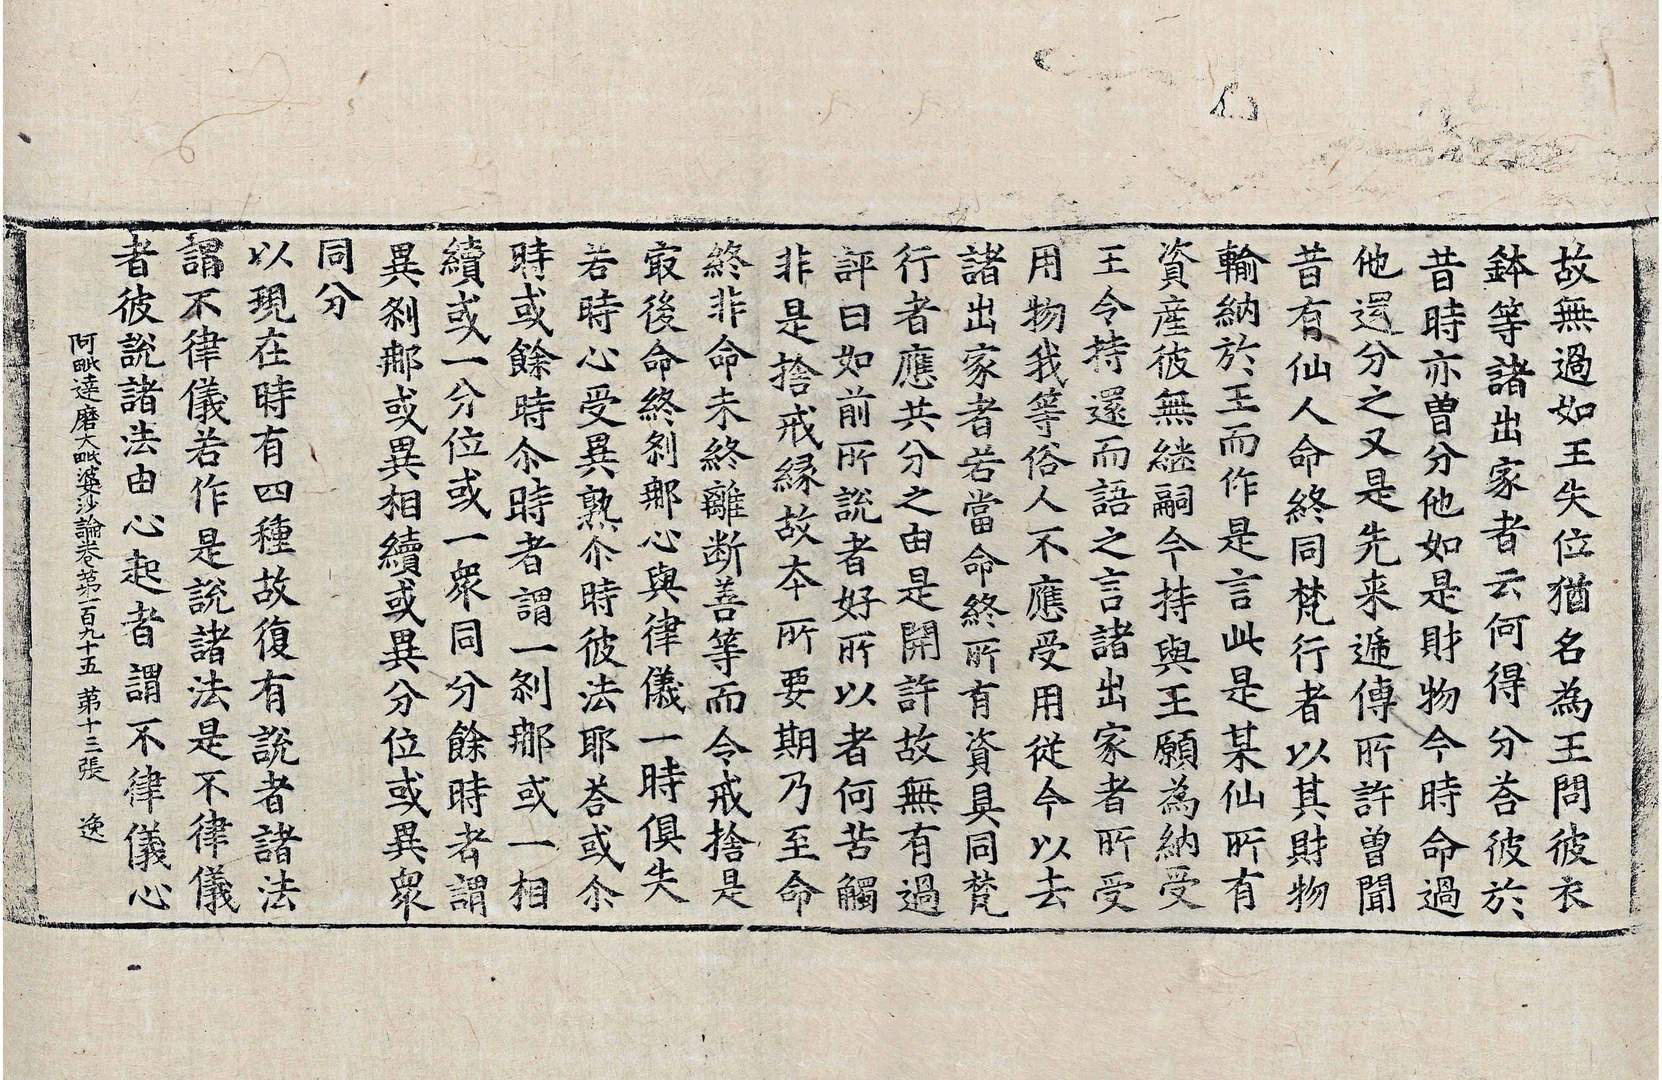 故無過如王失位猶名為王問彼衣
鉢等諸出家者云何得分荅彼於
昔時亦曽分他如是財物今時命過
他還分之又是先来遞傳所許曽聞
昔有仙人命終同梵行者以其財物
輸納於王而作是言此是某仙所有
資産彼無継嗣今持與王願為納受
王令持還而語之言諸出家者所受
用物我等俗人不應受用従今以去
諸出家者若當命終所有資具同梵
行者應共分之由是開許故無有過
評曰如前所説者好所以者何苦觸
非是捨戒縁故夲所要期乃至命
終非命未終離断善等而令戒捨是
㝡後命終刹那心與律儀一時俱失
若時心受異熟尒時彼法耶荅或尒
時或餘時尒時者謂一刹那或一相
續或一分位或一衆同分餘時者謂
異刹那或異相續或異分位或異衆
同分
以現在時有四種故復有説者諸法
謂不律儀若作是説諸法是不律儀
者彼説諸法由心起者謂不律儀心
阿毗達磨大毗婆沙論巻第一百九十五　第十三張　逸